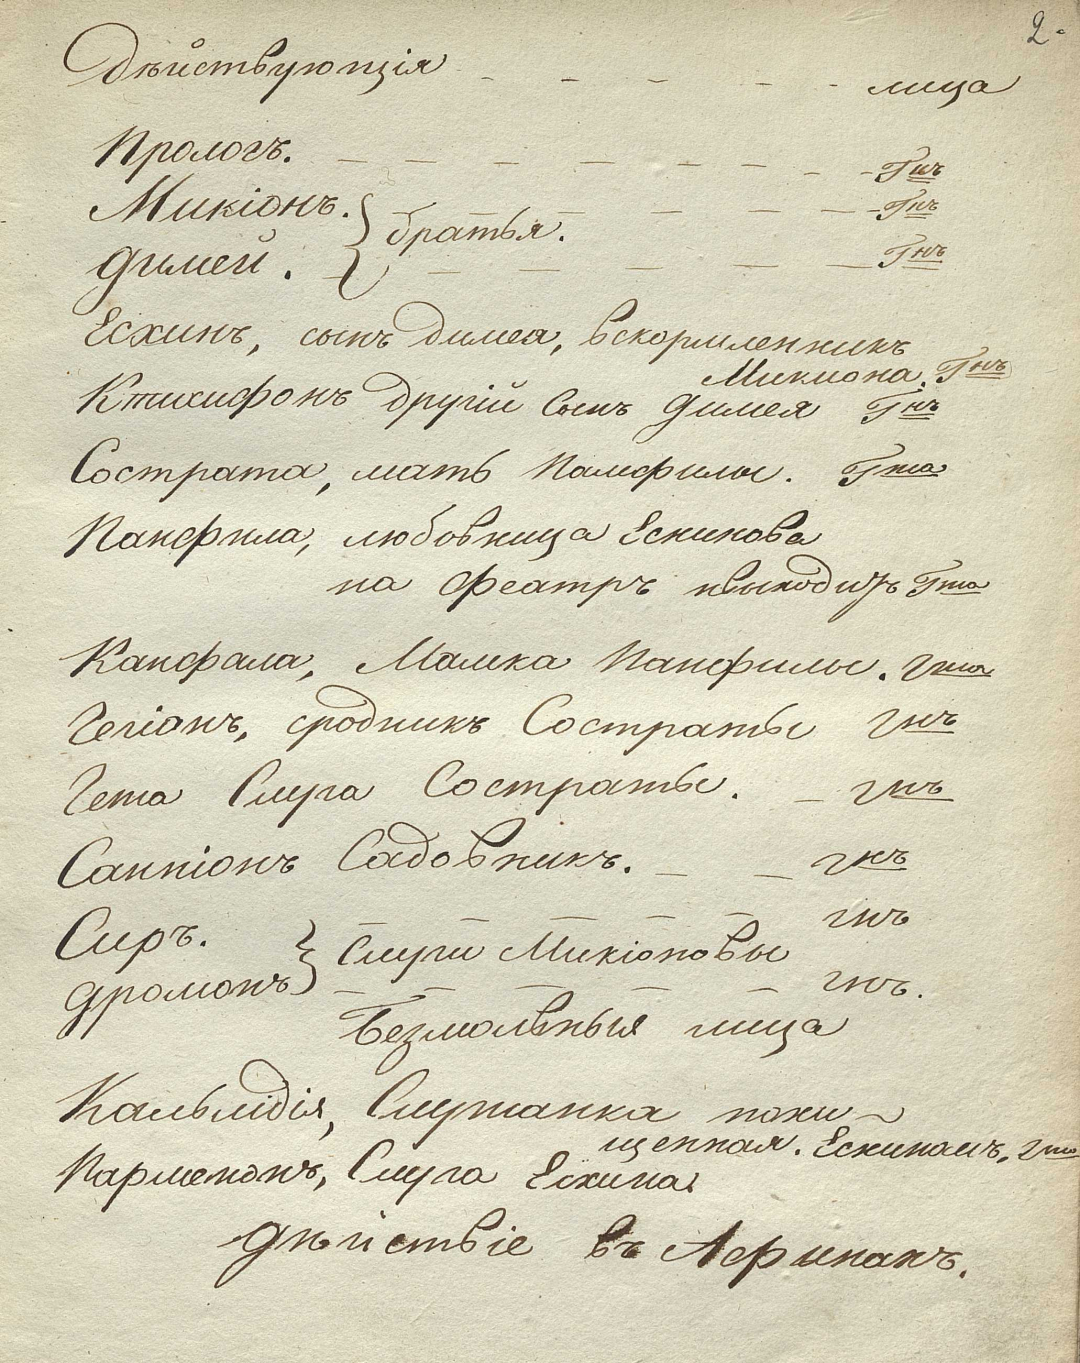 2.
Дѣйствующія - - - - - лица
Прологъ. — — — — — — — — Гнъ
Микіонъ. } братья. — — — — — Гнъ
Димей. — — — — — — Гнъ
Есхинъ, сынъ Димея, вскормленникъ
Микиона. Гнъ
Ктихифонъ другій Сынъ Димея Гнъ
Сострата, мать Памфилы. Гжа
Панфила, любовница Ескинова
на феатръ невыходитъ Гжа
Канфала, Мамка Панфилы. Гжа
Гегіонъ, сродникъ Состраты Гнъ
Гета Слуга Состраты. — Гнъ
Санніонъ Садовникъ. — — Гнъ
Сиръ. — — — — — Гнъ
} Слуги Микіоновы
Дромонъ — — — — — Гнъ.
Безмольныя лица
Кальлідія, Служанка похи-
щенная. Ескинамъ. Гжа
Парменонъ, Слуга Есхина.
Дѣйствіе въ Афинахъ.